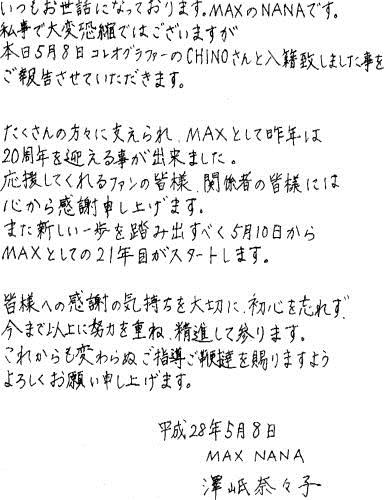 いつもお世話になっております。MAXのNANAです。
私事で大変恐縮ではございますが
本日5月8日コレオグラファーのCHINOさんと入籍致しました事を
ご報告させていただきます。
たくさんの方々に支えられ、MAXとして昨年は
20周年を迎える事が出来ました。
応援してくれるファンの皆様、関係者の皆様には
心から感謝申し上げます。
また新しい一歩を踏み出すべく5月10日から
MAXとしての21年目がスタートします。
皆様への感謝の気持ちを大切に、初心を忘れず、
今まで以上に努力を重ね、精進して参ります。
これからも変わらぬご指導ご鞭撻を賜りますよう
よろしくお願い申し上げます。
平成28年5月8日
MAX NANA
澤岻奈々子